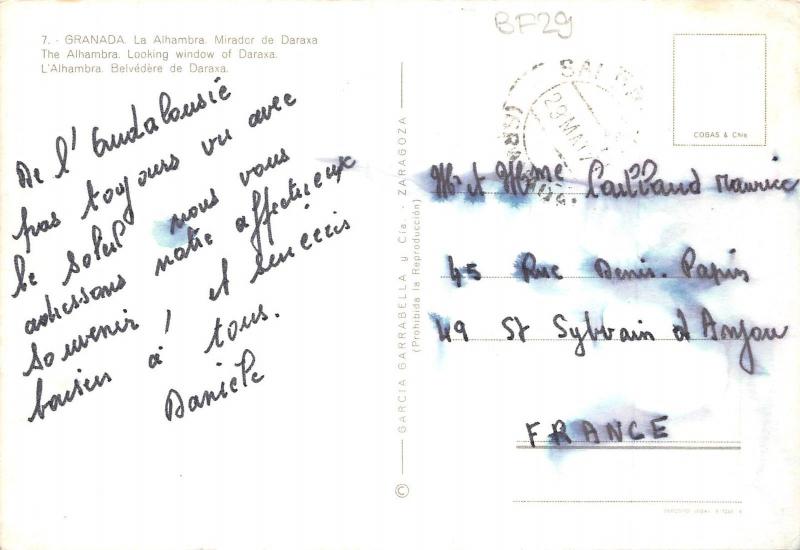 7. - GRANADA. La Alhambra. Mirador de Daraxa
The Alhambra. Looking window of Daraxa.
L'Alhambra. Belvédère de Daraxa.
De l'Andalousie
pas toujours vu avec
le soleil nous vous
adressons notre affectueux
souvenir! et sincères
baisers à tous.
Danièle
GARCIA GARRABELLA y Cía. - ZARAGOZA
(Prohibida la Reproducción)
©
BF29
29 MAY
COBAS & Cñía
Mr et Mme Maurice
45 Rue Denis-Papin
49 St Sylvain d'Anjou
FRANCE